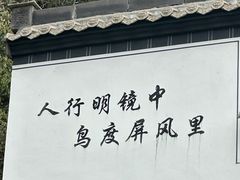 人行明镜中
鸟度屏风里